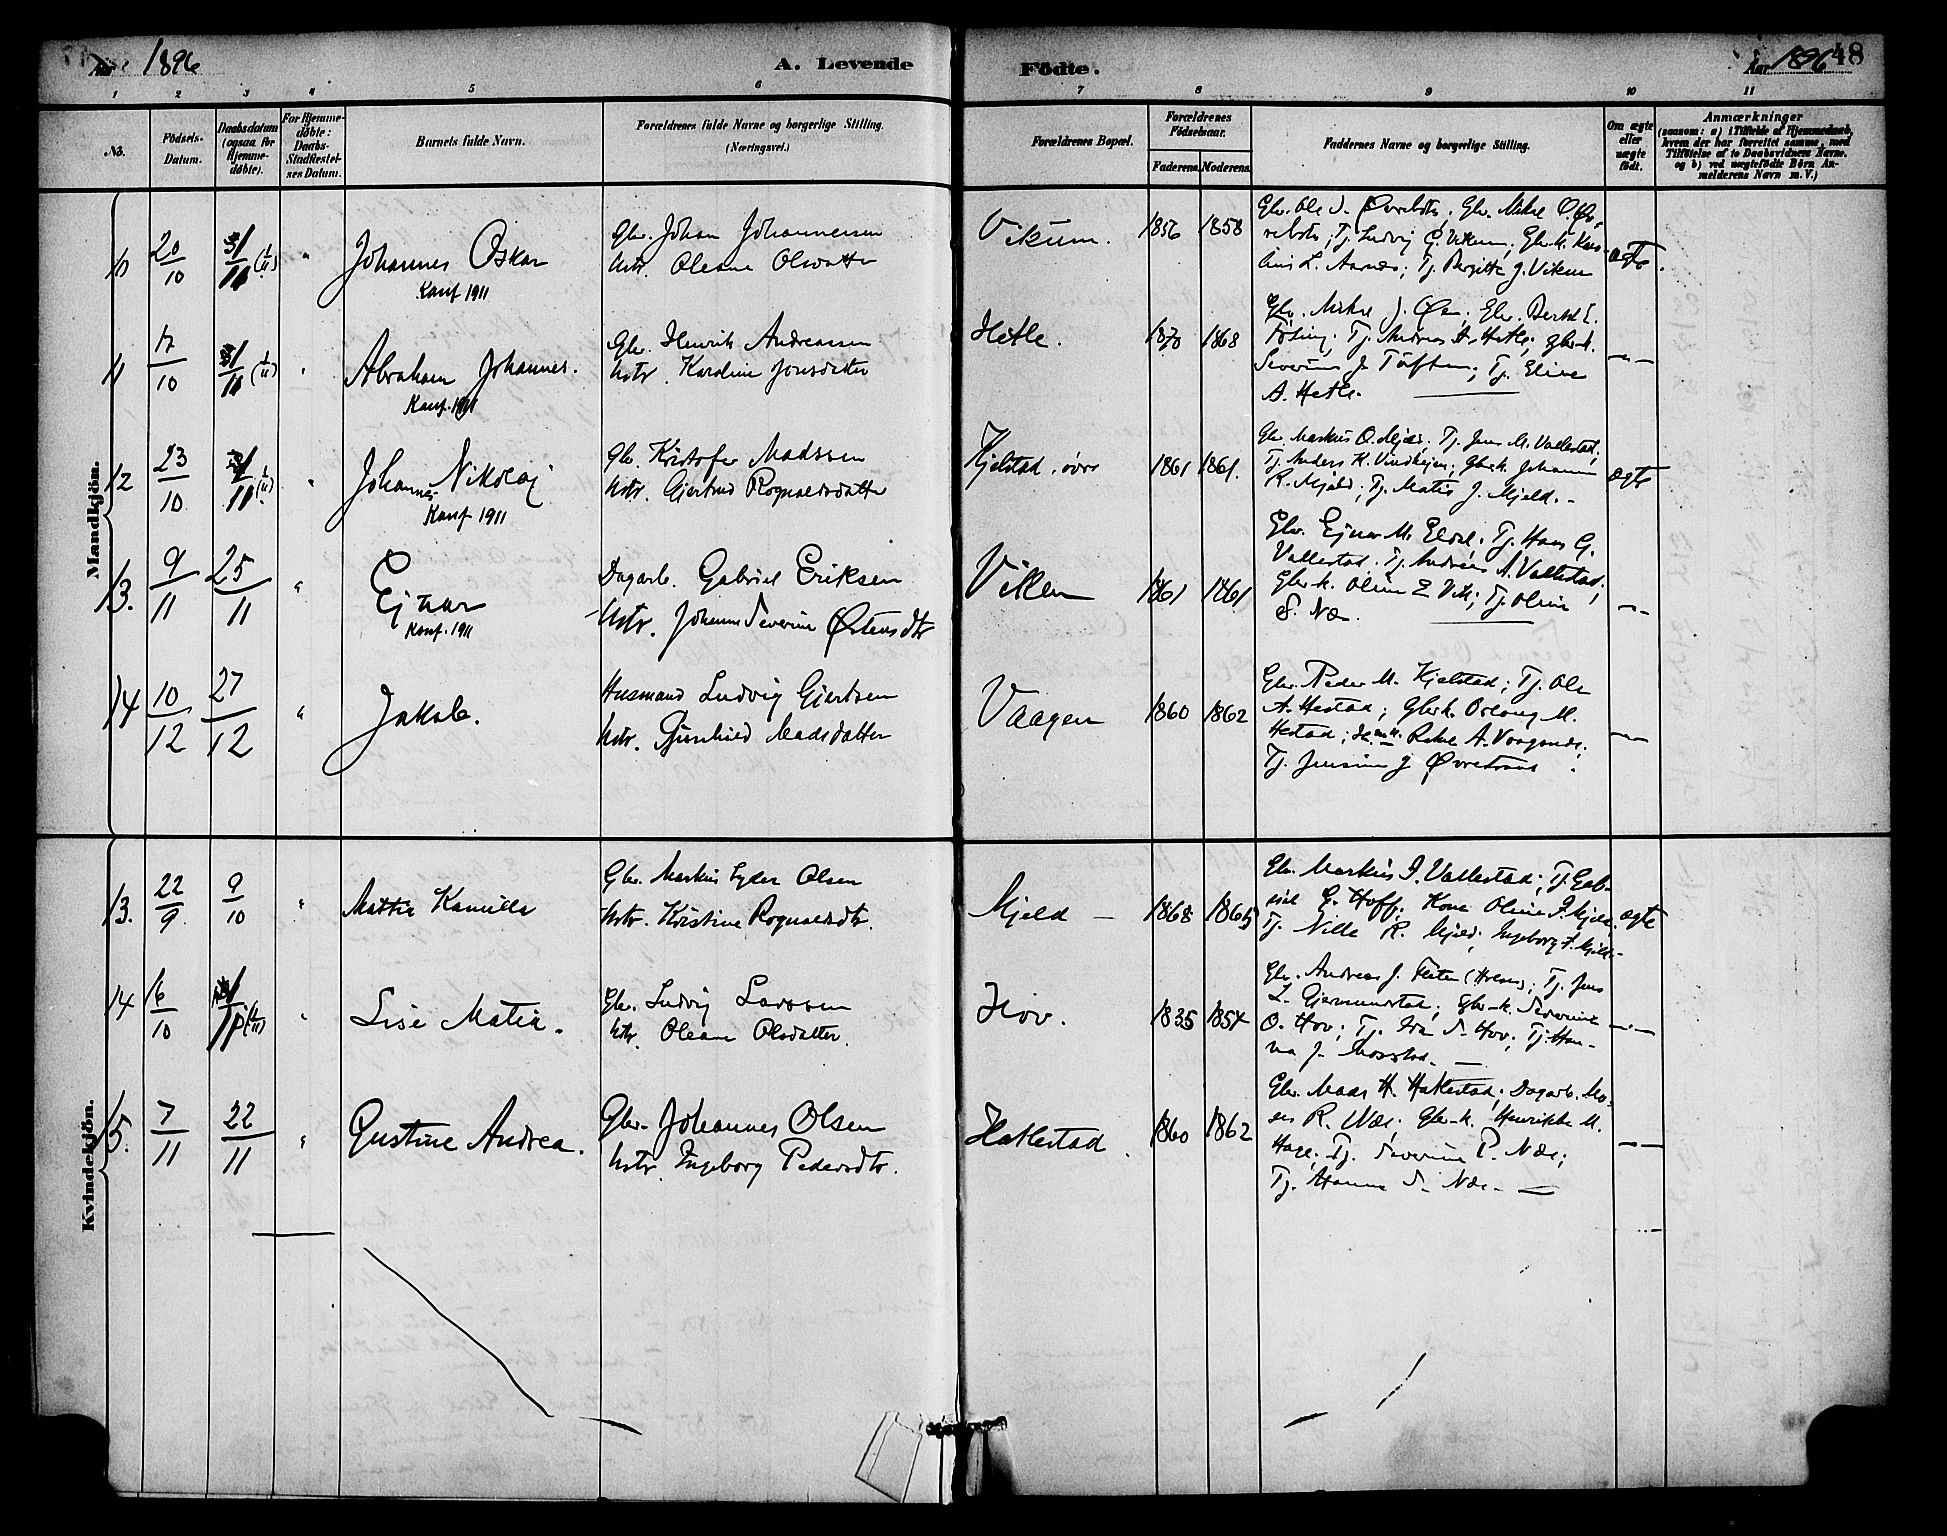 Aar 1896
A. Levende
Fødte.
Aar 1896
48
1 2 3 4 5 6 7 8 9 10 11
No.
Födsels-
Datum.
Daabsdatum
(ogsaa for
Hjemme-
döbte).
For Hjemme-
döbte:
Daabs-
Stadfæstel-
ses Datum.
Barnets fulde Navn.
Forældrenes fulde Navne og borgerlige Stilling.
(Næringsvei.)
Forældrenes Bopæl.
Forældrenes
Födselsaar.
Faderens. Moderens.
Faddernes Navne og borgerlige Stilling.
Om ægte
eller
uægte
født.
Anmærkninger
(saasom: a) i Tilfælde af Hjemmedaab,
hvem der har forrettet samme, med
Tilføielse af to Daabsvidners Navne,
og b) ved uægtefødte Börn An-
melderens Navn m. V.)
Mandkjön.
10 20/10 (1/11) " Johannes Oskar
Konf 1911
Gbr. Johan Johannessen
Hstr. Oleane Olsdatter
Vikum. 1856 1858
Gbr. Ole J. Øvrebotn, Gbr. Mikal O. Øv-
rebotn; Tj. Ludvig G. Vikum; Gbr.k. Karo-
line L. Aarnes; Tj. Birgitte J. Vikum
ægte.
11 17/10 (1/11) " Abraham Johannes.
Konf. 1911
Gbr. Henrik Andreassen
Hstr. Karoline Jonsdatter
Hetle. 1870 1868
Gbr. Mikal J. Øen. Gbr. Bertel E.
Tj. Andreas A. Hetle; Gbr.k.
Severine J. Tøften; Tj. Eline
A. Hetle.
— " —
12 23/10 (1/11) " Johannes Nikolaj
Konf 1911
Gbr. Kristofer Madssen
Hstr. Gjertrud Rognaldsdatter
Kjelstad, øvre 1861 1861.
Gbr. Markus O. Mjeld. Tj. Jens M. Vallestad;
Tj. Anders K. Vindheim; Gbr.k. Johanne
R. Mjeld; Tj. Matis J. Mjeld. -
ægte
13. 9/11 25/11 " Ejnar
Konf. 1911
Dagarb. Gabriel Eriksen
Hstr. Johanne Severine Østensdtr
Viken 1861 1861
Gbr. Ejnar M. Eldal. Tj. Hans G.
Vallestad. Tj. Andreas A. Vallestad;
Gbr.k. Oline E Vik; Tj. Oline
S. Næs.
— " —
14 10/12 27/12 " Jakob.
Husmand Ludvig Gjertsen
Hstr. Madsdatter
Vaagen 1860 1862
Gbr. Peder M. Kjelstad; Tj. Ole
A. Hestad; Gbr.k. Oslaug M.
Hestad; Rakel A. Vaagende;
Tj. Jensine J Øvrestrand.
— " —
Kvindekjön.
13. 22/9 9/10 " Mathea Kamilla
Gbr. Markus Lyder Olsen
Hstr. Kristine Rognaldsdtr.
Mjeld - 1868 1865
Gbr. Markus I. Vallestad; Tj. Gab-
riel E. Hoff; Kone Oline F. Mjeld.
Tj. Nille R. Mjeld; Ingeborg F. Mjeld. -
ægte
14 16/10 (1/11) " Lise Matia.
Gbr. Ludvig Larssen
Hstr. Oleane Olsdatter.
Hov. 1835 1854
Gbr. Andreas J. (Holsen); Tj. Jens
L. Gjermundstad; Gbr.k. Severine
O. Hov; Tj. Ida S. Hov; Tj. Han-
na J. -
— " —
15. 7/11 22/11 " Gustine Andrea.
Gbr. Johannes Olsen
Hstr. Ingeborg Pedersdtr.
Hatlestad. 1860 1862
Gbr. Mads H. Hatlestad; Dagarb. Mo-
ses R. Næs. Gbr.k. Henrikke M.
Hage; Tj. Severine P. Næs;
Tj. Hanna S. Næs. -
— " —